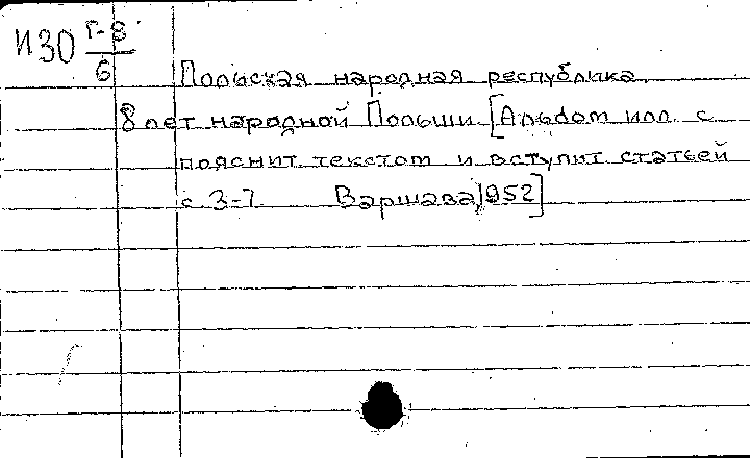 И30 Г-8
6
Польская народная республика.
8 лет народной Польши. [Альбом илл. с
пояснит. текстом и вступит. статьей
с. 3-7. Варшава, 1952]